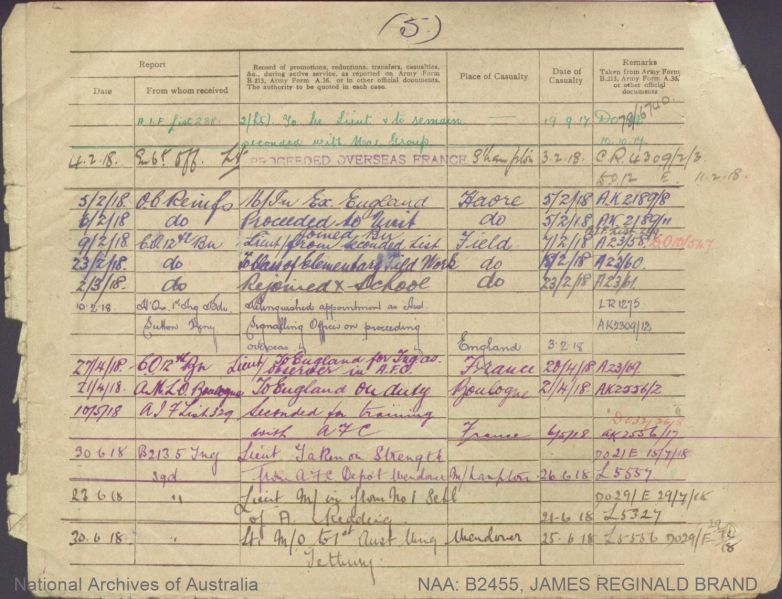 (5)
Report
Record of promotions, reductions, transfers, casualties,
&c., during active service, as reported on Army Form
B.213, Army Form A.36, or in other official documents.
The authority to be quoted in each case.
Place of Casualty
Date of
Casualty
Remarks
Taken from Army Form
B.213, Army Form A.36,
or other official
documents
Date
From whom received
A.I.F. List 238. 2/Lt. To be Lieut & to remain 19.9.17
seconded with Group
4.2.18. PROCEEDED OVERSEAS FRANCE S'hampton 3.2.18. C.R. 4309/2/3
5012 E. 11.2.18.
5/2/18 M/In Ex England Havre 5/2/18 AK2189/8
6/2/18 do Proceeded to Unit do 5/2/18 AK 2189/11
9/2/18 C.O. 12th Bn Lieut Joined Bn from Seconded List Field 7/2/18 A2358
23/2/18 do To Class of Elementary Field Work do A2360
2/3/18 do Rejoined x School do 23/2/18 A2361
10.2.18. Relinquished appointment as
LR1275
Sutton Signalling Officer on proceeding
AK2309/12
overseas England 3.2.18
27/4/18 CO 12th Bn Lieut To England for Trg as France 20/4/18 A2369
observer in A.F.C.
21/4/18 A.M.L.O. Boulogne To England on duty Boulogne 2/4/18 AK2556/2
10/5/18 AIF List 329 Seconded for training
with AFC France 6/5/18 AK2556/17
30.6.18 B213 5 Trng Lieut Taken on Strength DO21E 15/7/18
Sqd from AFC Depot Wendover M/hampton 26.6.18 L5557
23.6.18 " Lieut M/in from No1 Schl DO29/E 29/7/18
of A. Reading 21.6.18 L5327
30.6.18. " Lt M/O to 1st Aust Wing Wendover 25.6.18 L5556 DO29/E
Tetbury.
National Archives of Australia
NAA: B2455, JAMES REGINALD BRAND